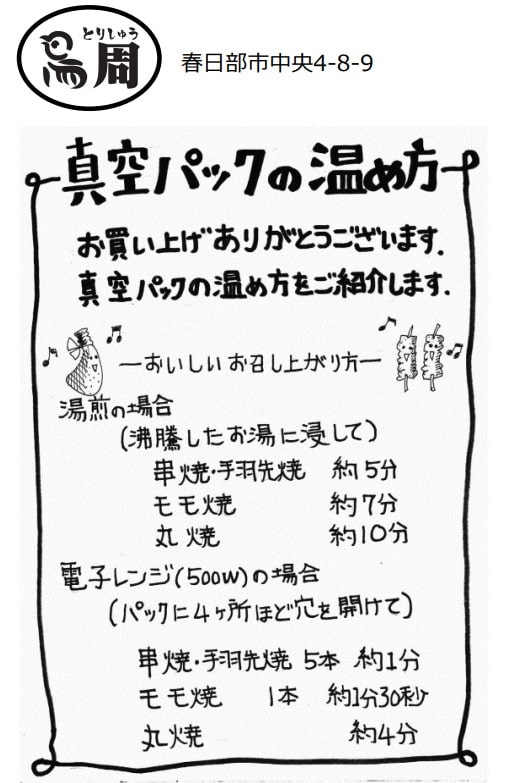 とりしゅう
鳥周
春日部市中央4-8-9
真空パックの温め方
お買い上げありがとうございます.
真空パックの温め方をご紹介します.
―おいしいお召し上がり方―
湯煎の場合
(沸騰したお湯に浸して)
串焼・手羽先焼 約5分
モモ焼 約7分
丸焼 約10分
電子レンジ(500W)の場合
(パックに4ヶ所ほど穴を開けて)
串焼・手羽先焼 5本 約1分
モモ焼 1本 約1分30秒
丸焼 約4分